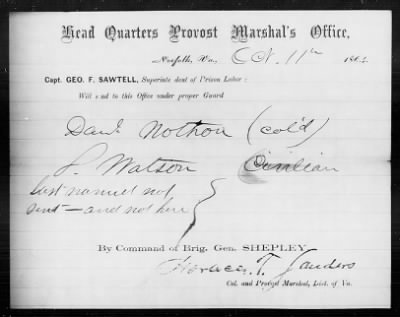 Head Quarters Provost Marshal's Office,
Norfolk, Va., Oct. 11th 186
Capt. GEO. F. SAWTELL, Superintendent of Prison Labor:
Will send to this Office under proper Guard
Danl Nothon (col'd)
S. Watson Civilian
last named not
sent — and not here
By Command of Brig. Gen. SHEPLEY,
Horace T. Sanders
Col. and Provost Marshal, Dist. of Va.